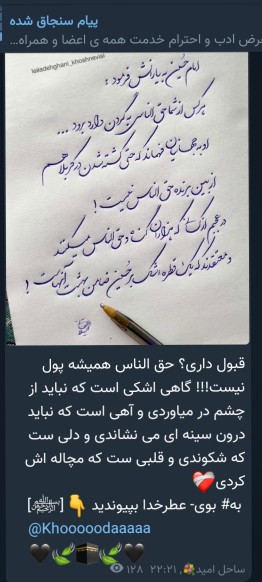 پیام سنجاق شده
عرض ادب و احترام خدمت همه ی اعضا و همراه...
kaladehghani_khoshnevisi
امام حسین به یارانش فرمود :
هر کس از شما حق الناس به گردن دارد برود ...
او به جهانیان فهماند که حتی کشته شدن در کربلا هم
از بین برنده حق الناس نیست !
در عجبم از کسانی که هزاران گناه و حق الناس میکنند
و معتقدند که یک قطره اشک بر حسین ضامن بهشت آنهاست !
قبول داری؟ حق الناس همیشه پول
نیست!!! گاهی اشکی است که نباید از
چشم در میاوردی و آهی است که نباید
درون سینه ای می نشاندی و دلی ست
که شکوندی و قلبی ست که مچاله اش
کردی❤️‍🩹
به# بوی- عطرخدا بپیوندید 👇 [﷽]
@Khooooodaaaaa
🖤🍃🕋🍃🖤
ساحل امید💐, ۲۲:۲۱ ۱۲۸